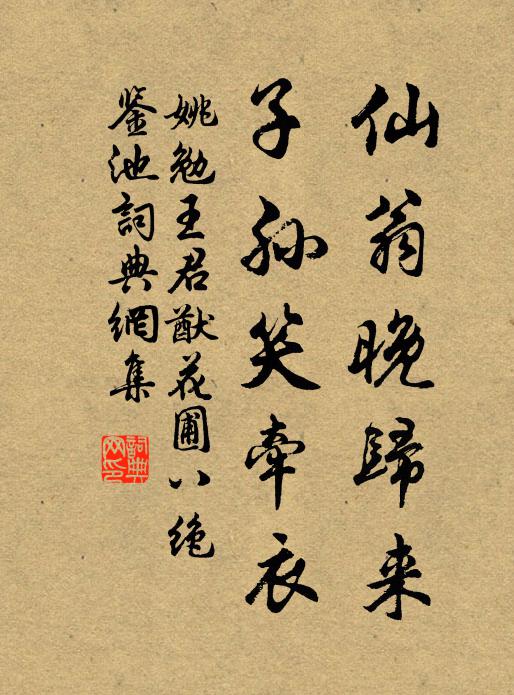 仙翁晚歸来
子孙笑牽衣
姚勉王君猷花圃八绝
鉴池詞典網集
詞典网印